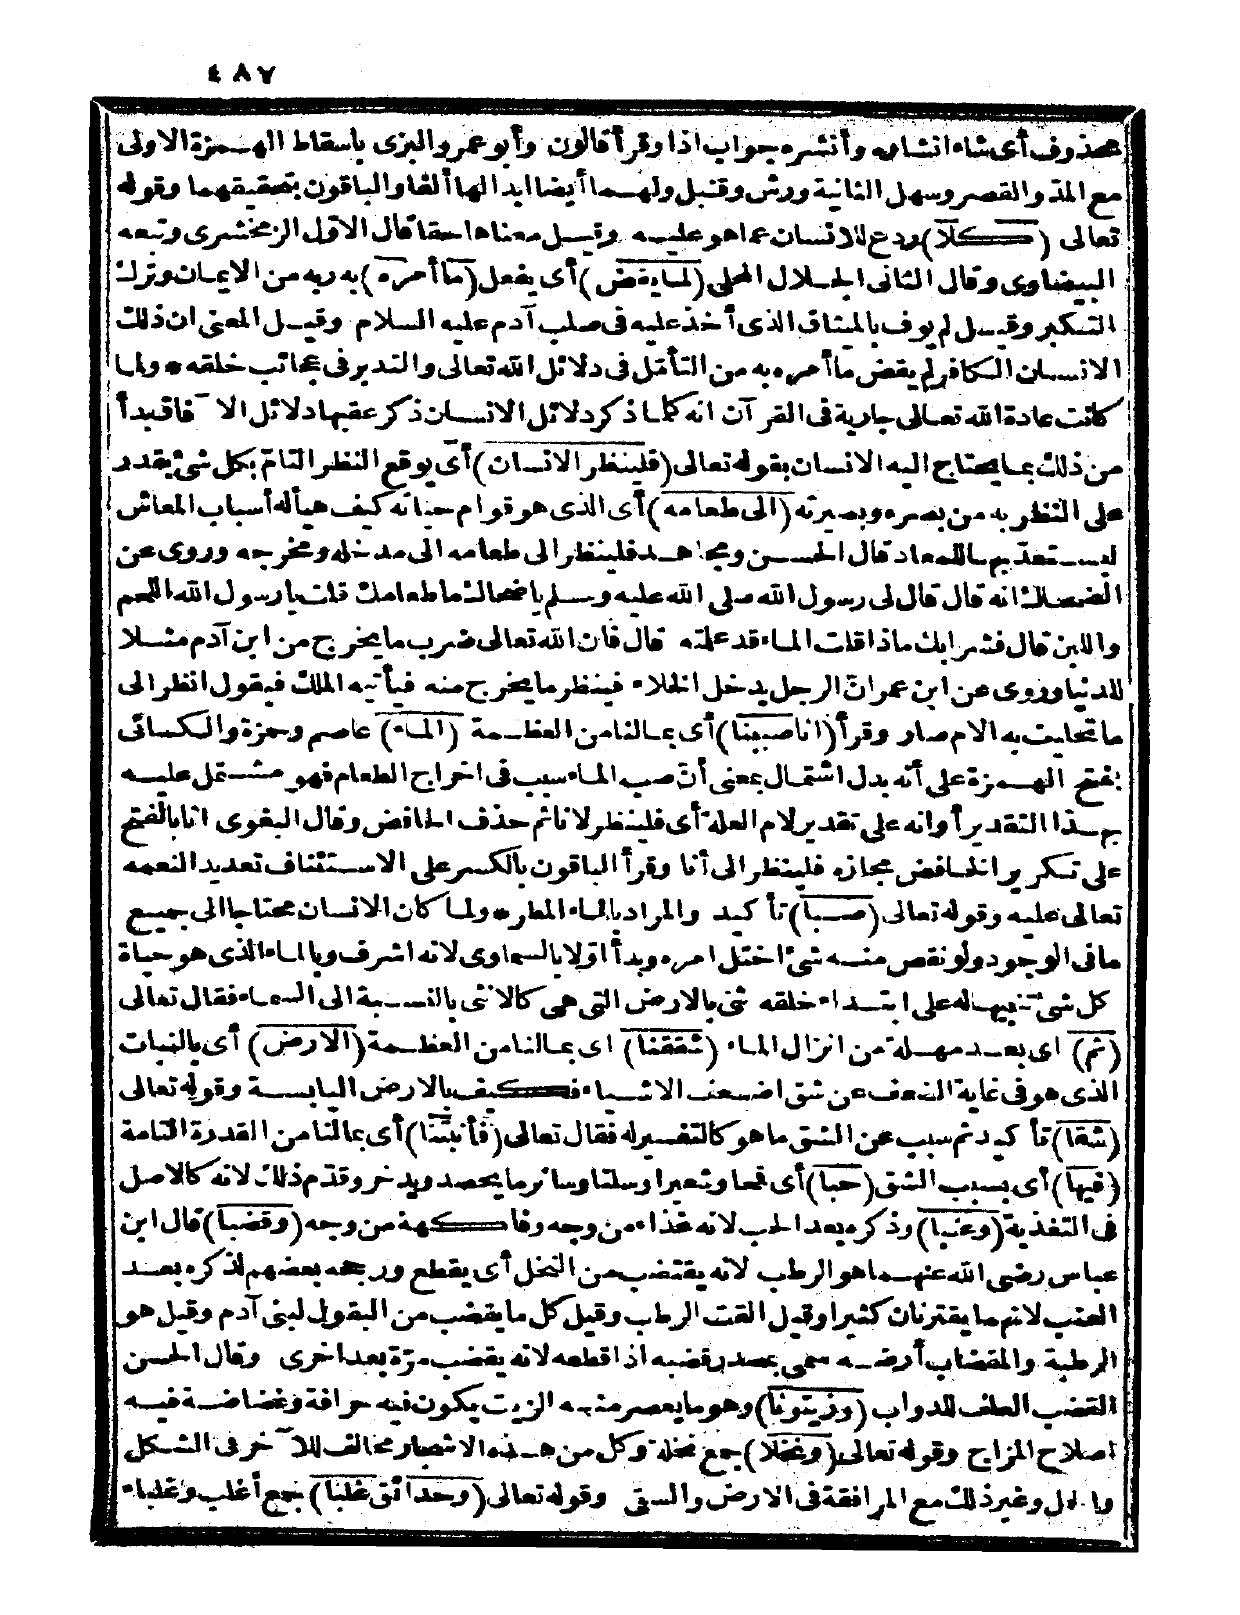 ٤٨٧
محذوف أى شاء انشاره وأنشره جواب اذا وقرأ قالون وأبو عمرو والبزى باسقاط الهمزة الاولى
مع المد والقصر وسهل الثانية ورش وقنبل ولهما أيضا ابدالها ألفا والباقون بتحقيقهما وقوله
تعالى (كلا) ردع للانسان عما هو عليه وقيل معناها حقا قال الاول الزمخشرى وتبعه
البيضاوى وقال الثانى الجلال المحلى (لما يقض) أى يفعل (ما أمره) به ربه من الايمان وترك
التكبر وقيل لم يوف بالميثاق الذى أخذ عليه فى صلب آدم عليه السلام وقيل المعنى ان ذلك
الانسان الكافر لم يقض ما أمره به من التأمل فى دلائل الله تعالى والتدبر فى عجائب خلقه * ولما
كانت عادة الله تعالى جارية فى القرآن انه كلما ذكر دلائل الانسان ذكر عقبها دلائل الآفاق بدأ
من ذلك بما يحتاج اليه الانسان بقوله تعالى (فلينظر الانسان) أى يوقع النظر التام بكل شئ يقدر
على النظر به من بصره وبصيرته (الى طعامه) أى الذى هو قوام حياته كيف هيأ له أسباب المعاش
ليستعد بها للمعاد قال الحسن ومجاهد فلينظر الى طعامه الى مدخله ومخرجه وروى عن
الضحاك انه قال قال لى رسول الله صلى الله عليه وسلم يا ضحاك ما طعامك قلت يا رسول الله اللحم
واللبن قال فشرابك ماذا قلت الماء قد علمته قال فان الله تعالى ضرب ما يخرج من ابن آدم مثلا
للدنيا وروى عن ابن عمر ان الرجل يدخل الخلاء فينظر ما يخرج منه فيأتيه الملك فيقول انظر الى
ما تحليت به الام صار وقرأ (انا صببنا) أى بمالنا من العظمة (الماء) عاصم وحمزة والكسائى
بفتح الهمزة على أنه بدل اشتمال بمعنى أن صب الماء سبب فى اخراج الطعام فهو مشتمل عليه
بهذا التقدير أو انه على تقدير لام العلة أى فلينظر لانا ثم حذف الخافض وقال البغوى انا بالفتح
على تكرير الخافض مجازه فلينظر الى أنا وقرأ الباقون بالكسر على الاستئناف تعديد النعمه
تعالى عليه وقوله تعالى (صبا) تأكيد والمراد بالماء المطر * ولما كان الانسان محتاجا الى جميع
ما فى الوجود ولو نقص منه شئ اختل امره وبدأ أولا بالسماوى لانه اشرف وبالماء الذى هو حياة
كل شئ تنبيها له على ابتداء خلقه ثنى بالارض التى هى كالانثى بالنسبة الى السماء فقال تعالى
(ثم) اى بعد مهلة من انزال الماء (شققنا) اى بمالنا من العظمة (الارض) أى بالنبات
الذى هو فى غاية الضعف عن شق اضعف الاشياء فكيف بالارض اليابسة وقوله تعالى
(شقا) تأكيد ثم سبب عن الشق ما هو كالتفسير له فقال تعالى (فأنبتنا) أى بمالنا من القدرة التامة
(فيها) أى بسبب الشق (حبا) أى قمحا وشعيرا وسلتا وسائر ما يحصد ويدخر وقدم ذلك لانه كالاصل
فى التغذية (وعنبا) وذكره بعد الحب لانه غذاء من وجه وفاكهة من وجه (وقضبا) قال ابن
عباس رضى الله عنهما هو الرطب لانه يقتضب من النخل أى يقطع ورجحه بعضهم لذكره بعد
العنب لانهما يقترنان كثيرا وقيل القت الرطب وقيل كل ما يقضب من البقول لبنى آدم وقيل هو
الرطبة والمقضاب أرضه سمى بمصدر قضبه اذا قطعه لانه يقضب مرة بعد اخرى وقال الحسن
القضب العلف للدواب (وزيتونا) وهو ما يعصر منه الزيت يكون فيه حرافة وغضاضة فيه
اصلاح المزاج وقوله تعالى (ونخلا) جمع نخلة وكل من هذه الاشجار مخالف للآخر فى الشكل
والحمل وغير ذلك مع المرافقة فى الارض والسقى وقوله تعالى (وحدائق غلبا) جمع أغلب وغلباء